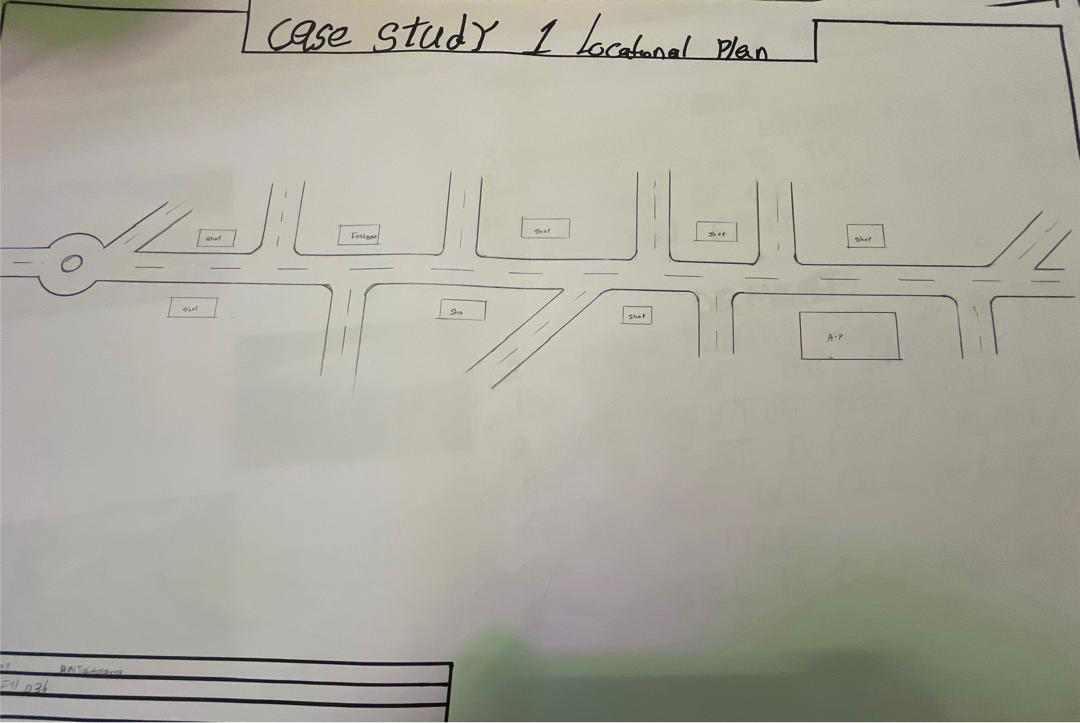 Case Study 1 Locational Plan
Shop
Shop
Shop
Shop
Shop
Sho
Shop
A-P
036